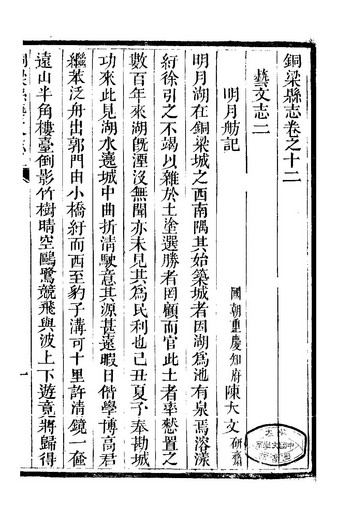 銅梁縣志卷之十二
藝文志二
明月舫記
國朝重慶知府陳大文研齋
明月湖在銅梁城之西南隅其始築城者因湖為池有泉焉溶漾
紆徐引之不竭以雜於土塗選勝者罔顧而官此土者率憖置之
數百年來湖旣湮沒無聞亦未見其為民利也己丑夏予奉勘城
功來此見湖水遶城中曲折清駛意其源甚遠暇日偕學博高君
繼棻泛舟出郭門由小橋紆而西至豹子溝可十里許清鏡一奩
遠山半角樓臺倒影竹樹晴空鷗鷺競飛與波上下遊竟將歸得
一